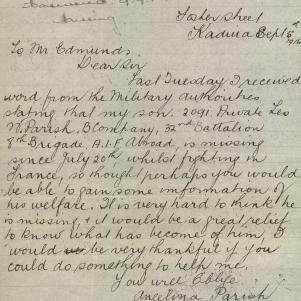 Missing
Taylor Street
Kadina Sept 5th
1916
To Mr Edmunds.
Dear Sir
Last Tuesday I received
word from the Military authorities
stating that my son. 2091. Private Leo
W. Parish. B Company, 32nd Battalion
8th Brigade, A.I.F Abroad, is missing
since July 20th, whilst fighting in
France, so though perhaps you would
be able to gain some information of
his welfare. It is very hard to think he
is missing, & it would be a great relief
to know what has become of him, I
would be very thankful if you
could do something to help me.
You will Oblige
Angelina Parish